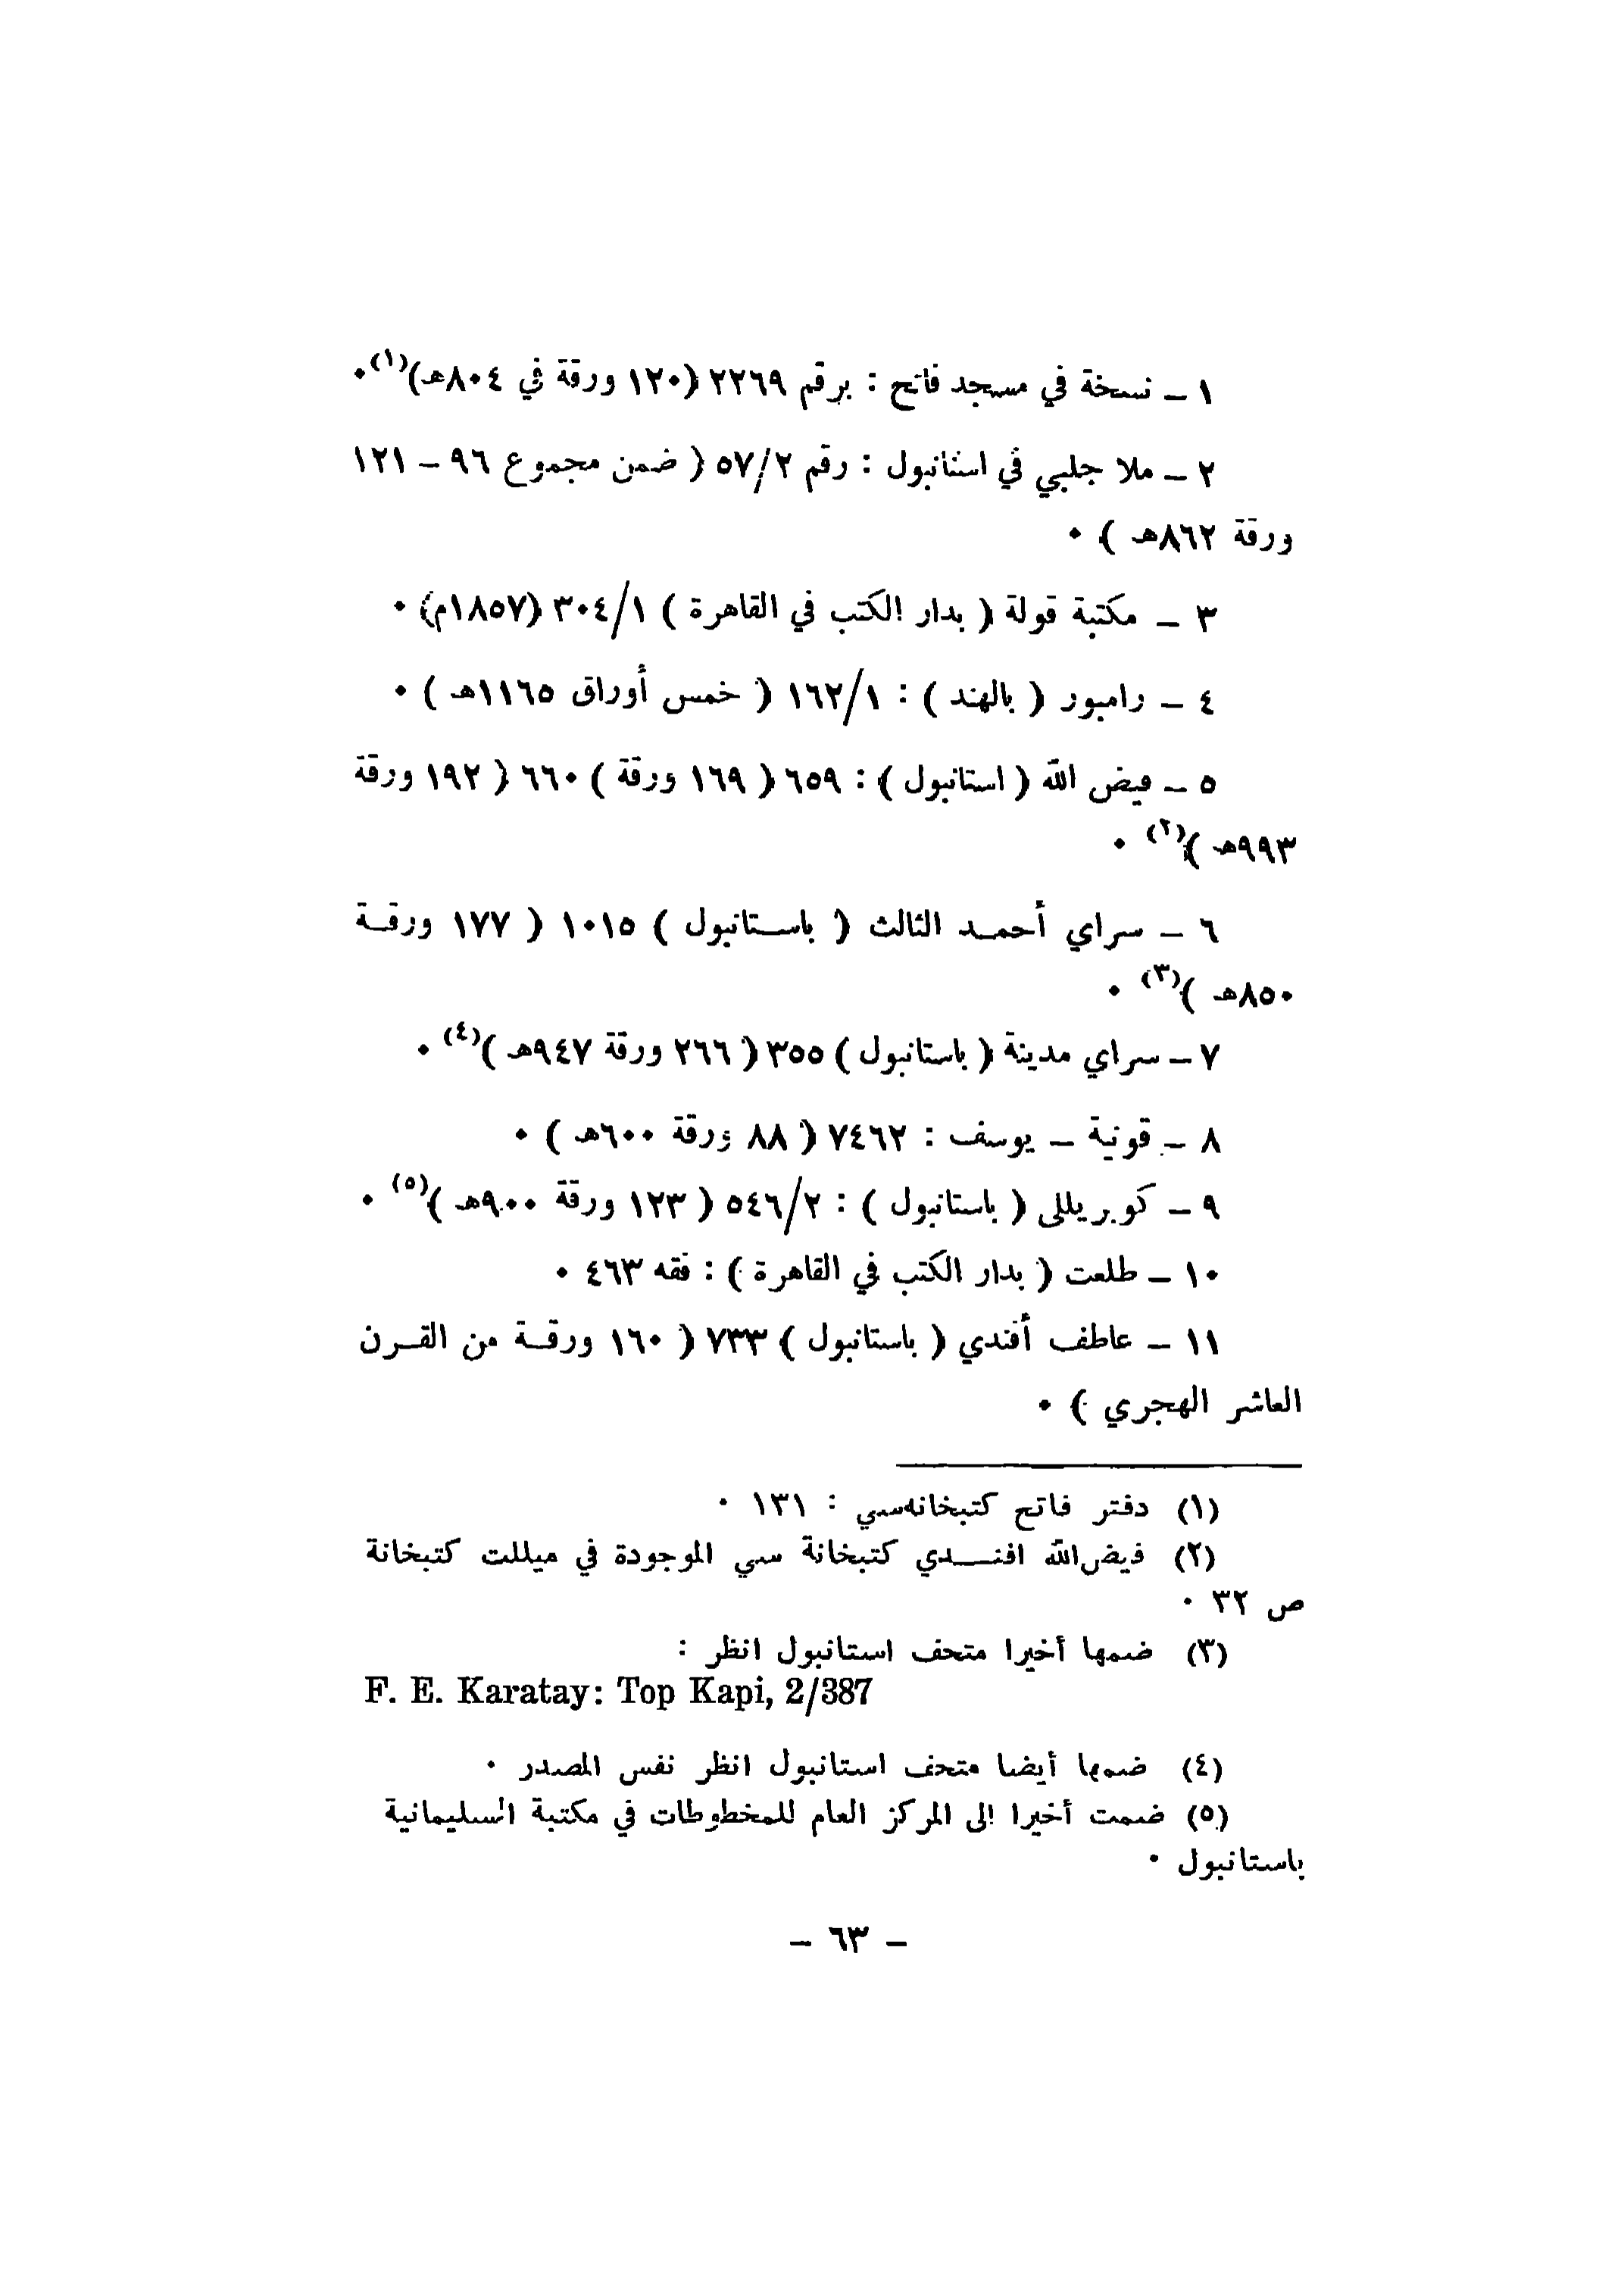 ١ ـ نسخة في مسجد فاتح : برقم ٢٢٦٩ (١٢٠ ورقة في ٨٠٤هـ)(١)٠
٢ ـ ملا جلبي في استانبول : رقم ٥٧/٢ ( ضمن مجموع ٩٦ ـ ١٢١
ورقة ٨٦٢هـ ) ٠
٣ ـ مكتبة قولة ( بدار الكتب في القاهرة ) ٣٠٤/١ (١٨٥٧م) ٠
٤ ـ رامبور ( بالهند ) : ١٦٢/١ ( خمس أوراق ١١٦٥هـ ) ٠
٥ ـ فيض الله ( استانبول ) : ٦٥٩ ( ١٦٩ ورقة ) ٦٦٠ ( ١٩٢ ورقة
٩٩٣هـ )(٢) ٠
٦ ـ سراي أحمـد الثالث ( باسـتانبول ) ١٠١٥ ( ١٧٧ ورقـة
٨٥٠هـ )(٣) ٠
٧ ـ سراي مدينة ( باستانبول ) ٣٥٥ ( ٢٦٦ ورقة ٩٤٧هـ )(٤) ٠
٨ ـ قونية ـ يوسف : ٧٤٦٢ ( ٨٨ ورقة ٦٠٠هـ ) ٠
٩ ـ كوبريللى ( باستانبول ) : ٥٤٦/٢ ( ١٢٣ ورقة ٩٠٠هـ )(٥) ٠
١٠ ـ طلعت ( بدار الكتب في القاهرة ) : فقه ٤٦٣ ٠
١١ ـ عاطف أفندي ( باستانبول ) ٧٣٣ ( ١٦٠ ورقـة من القـرن
العاشر الهجري ) ٠
(١) دفتر فاتح كتبخانه‌سي : ١٣١ ٠
(٢) فيض‌الله افنـــدي كتبخانة سي الموجودة في ميللت كتبخانة
ص ٣٢ ٠
(٣) ضمها أخيرا متحف استانبول انظر :
F. E. Karatay: Top Kapi, 2/387
(٤) ضمها أيضا متحف استانبول انظر نفس المصدر ٠
(٥) ضمت أخيرا الى المركز العام للمخطوطات في مكتبة السليمانية
باستانبول ٠
ـ ٦٣ ـ